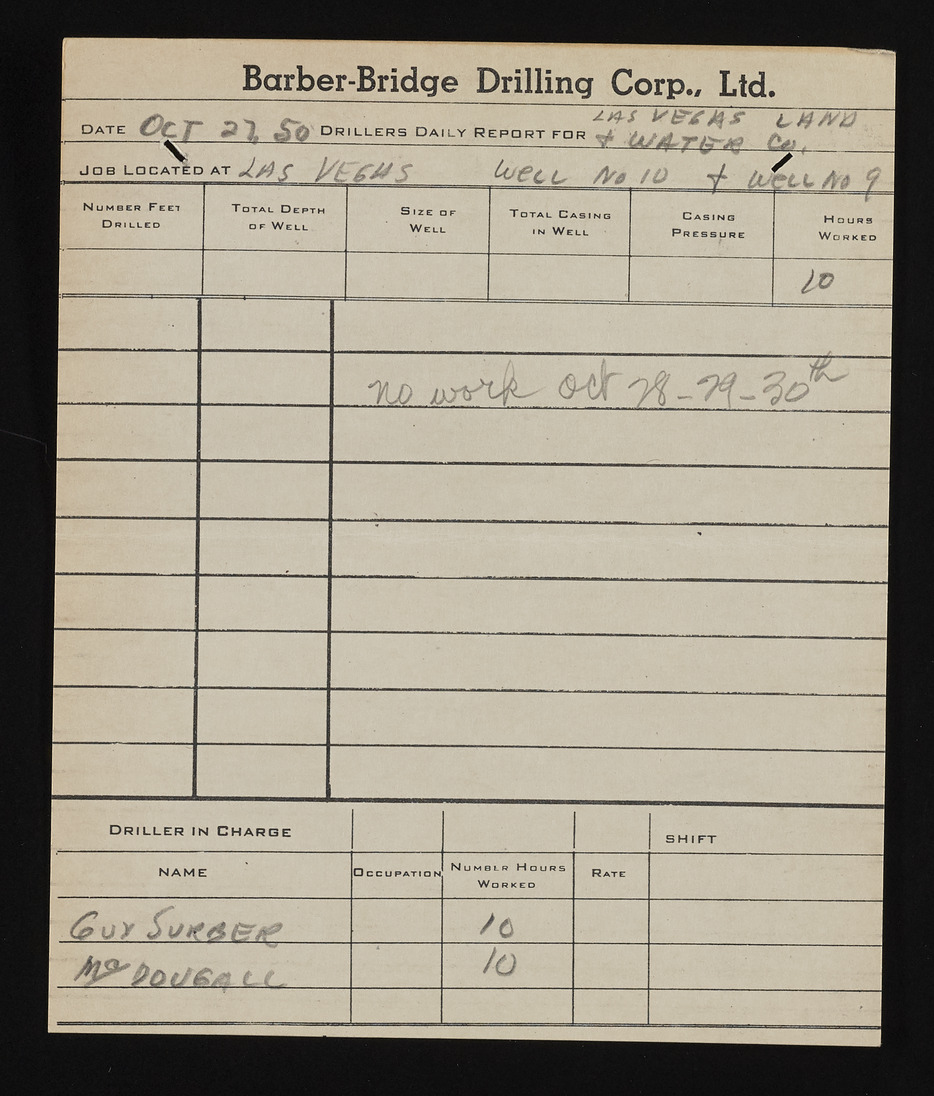 Barber-Bridge Drilling Corp., Ltd.
DATE OCT 27, 50 DRILLERS DAILY REPORT FOR LAS VEGAS LAND
& WATER Co.
JOB LOCATED AT LAS VEGAS WELL No 10 & WELL No 9
NUMBER FEET DRILLED TOTAL DEPTH OF WELL SIZE OF WELL TOTAL CASING IN WELL CASING PRESSURE HOURS WORKED
10
no work oct 28-29-30th
DRILLER IN CHARGE SHIFT
NAME OCCUPATION NUMBER HOURS WORKED RATE
GUY SURBER 10
McDOUGALL 10